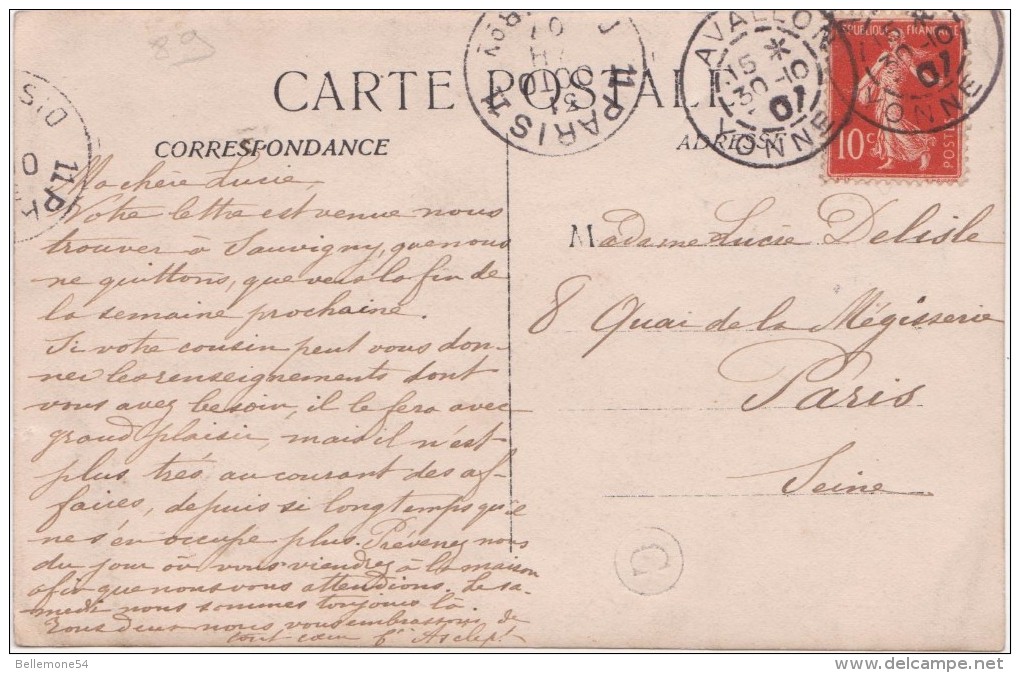 CARTE POSTALE
CORRESPONDANCE
ADRESSE
AVALLON
15 30 -10 07
YONNE
AVALLON
15 30 -10 07
YONNE
REPUBLIQUE FRANÇAISE
10c
POSTES
PARIS
11
Ma chère Lucie,
Votre lettre est venue nous
trouver à Sauvigny, que nous
ne quittons, que vers la fin de
la semaine prochaine.
Si votre cousin peut vous don-
ner les renseignements dont
vous avez besoin, il le fera avec
grand plaisir, mais il n'est
plus très au courant des af-
faires, depuis si longtemps qu'il
ne s'en occupe plus. Prévenez nous
du jour où vous viendrez à la maison
afin que nous vous attendions. Le sa-
medi nous sommes toujours là.
Tous deux nous vous embrassons de
tout cœur
Madame Lucie Delisle
8 Quai de la Mégisserie
Paris
Seine
G
Bellemone54
www.delcampe.net